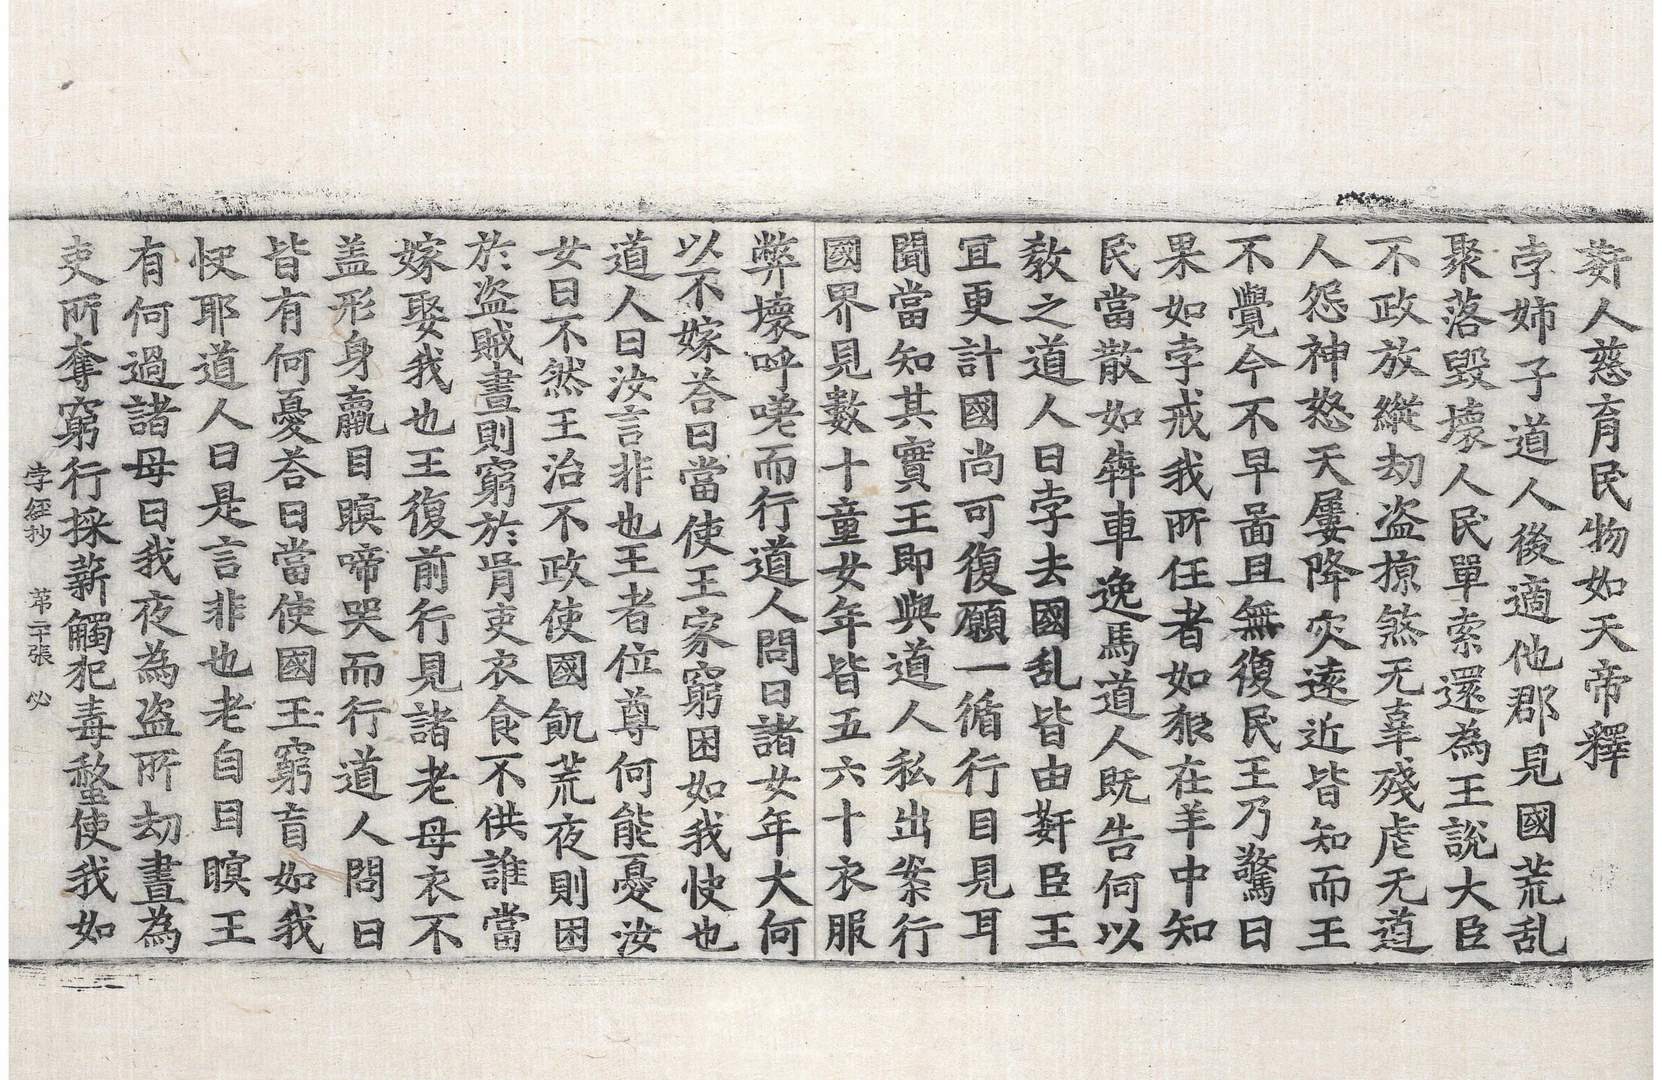 姧人慈育民物如天帝釋
孛姉子道人後適他郡見國荒乱
聚落毀壞人民單索還為王說大臣
不政放縱劫盗掠煞无辜殘虐无道
人怨神怒天屢降灾遠近皆知而王
不覺今不早啚且無復民王乃驚曰
果如孛戒我所任者如狼在羊中知
民當散如犇車逸馬道人旣告何以
教之道人曰孛去國乱皆由姧臣王
冝更計國尚可復願一循行目見耳
聞當知其實王即與道人私出案行
國界見數十童女年皆五六十衣服
弊壞呼嗟而行道人問曰諸女年大何
以不嫁荅曰當使王家窮困如我快也
道人曰汝言非也王者位尊何能憂汝
女曰不然王治不政使國飢荒夜則困
於盗賊晝則窮於胥吏衣食不供誰當
嫁娶我也王復前行見諸老母衣不
盖形身羸目瞑啼哭而行道人問曰
皆有何憂荅曰當使國王窮盲如我
快耶道人曰是言非也老自目瞑王
有何過諸母曰我夜為盗所劫晝為
吏所奪窮行採薪觸犯毒螫使我如
孛經抄　苐二十張　必